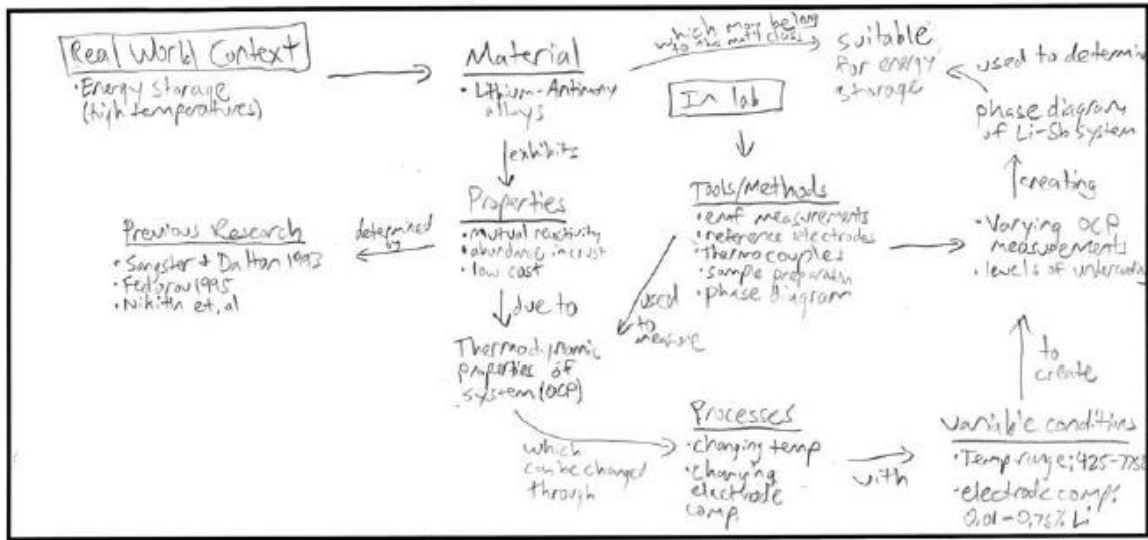 Real World Context
• Energy storage
(high temperatures)
Material
• Lithium-Antimony
alloys
which may belong
to this mat'l class
suitable
for energy
storage
used to determine
phase diagram
of Li-Sb system
creating
In lab
exhibits
Properties
• mutual reactivity
• abundance in crust
• low cost
determined
by
Previous Research
• Sangster + Dalton 1993
• Fedorov 1995
• Nikitin et. al
Tools/Methods
• emf measurements
• reference electrodes
• thermocouples
• sample preparation
• phase diagram
• Varying OCP
measurements
• levels of
due to
used
to
measure
Thermodynamic
properties of
system (OCP)
to
create
which
can be changed
through
Processes
• changing temp
• changing
electrode
comp.
with
variable conditions
• Temp range: 425-775
• electrode comp:
0.01-0.75% Li